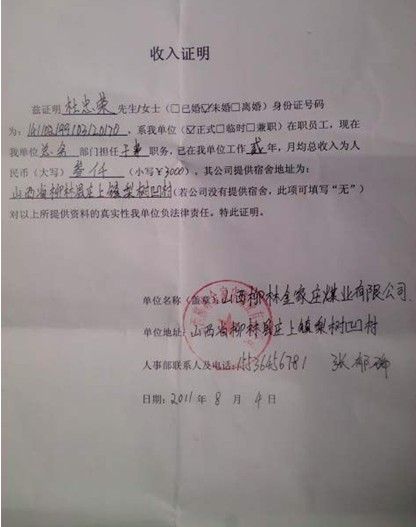 收入证明
兹证明 杜忠荣 先生/女士（□已婚☑未婚□离婚）身份证号码
为：，系我单位（☑正式□临时□兼职）在职员工，现在
我单位 总务 部门担任 主管 职务，已在我单位工作 贰 年，月均总收入为人
民币（大写） 叁仟 （小写￥3000），其公司提供宿舍地址为：
山西省柳林县庄上镇梨树凹村（若公司没有提供宿舍，此项可填写“无”）
对以上所提供资料的真实性我单位负法律责任。特此证明。
单位名称（盖章）：山西柳林金家庄煤业有限公司
单位地址：山西省柳林县庄上镇梨树凹村
人事部联系人及电话：15536456781 张郁
日期：2011 年 8 月 4 日